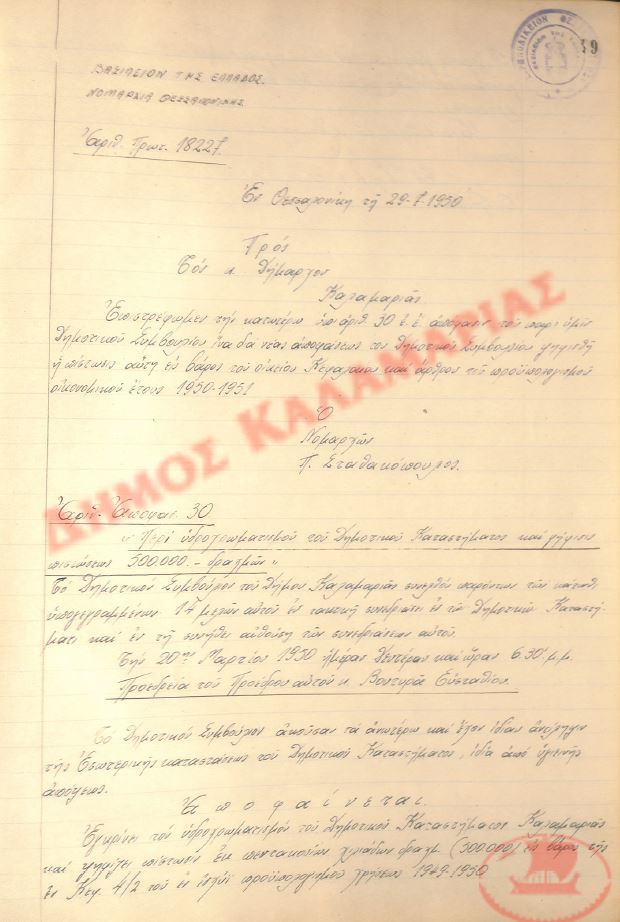 39
ΒΑΣΙΛΕΙΟΝ ΤΗΣ ΕΛΛΑΔΟΣ.
ΝΟΜΑΡΧΙΑ ΘΕΣΣΑΛΟΝΙΚΗΣ
Ἀριθ. Πρωτ. 18227.
Ἐν Θεσσαλονίκῃ τῇ 29-7-1950
Πρός
Τόν κ. Δήμαρχον
Καλαμαριᾶς
Ἐπιστρέφωμεν τήν κατωτέρω ὑπ' ἀριθ. 30 ἐ.ἔ. ἀπόφασιν τοῦ παρ' ὑμῖν
Δημοτικοῦ Συμβουλίου ἵνα διά νέας ἀποφάσεως τοῦ Δημοτικοῦ Συμβουλίου ψηφισθῇ
ἡ πίστωσις αὕτη εἰς βάρος τοῦ οἰκείου Κεφαλαίου καί ἄρθρου τοῦ προϋπολογισμοῦ
οἰκονομικοῦ ἔτους 1950-1951
Ὁ
Νομάρχης
Π. Σταθακόπουλος.
ΔΗΜΟΣ ΚΑΛΑΜΑΡΙΑΣ
Ἀριθ. Ἀποφάσ. 30
"Περί ὑδροχρωματισμοῦ τοῦ Δημοτικοῦ Καταστήματος καί ψήφισις
πιστώσεως 500.000.- δραχμῶν"
Τό Δημοτικόν Συμβούλιον τοῦ Δήμου Καλαμαριᾶς συνελθόν παρόντων τῶν κάτωθι
ὑπογεγραμμένων 14 μελῶν αὐτοῦ ἐν τακτικῇ συνεδριάσει ἐν τῷ Δημοτικῷ Καταστή-
ματι καί ἐν τῇ συνήθει αἰθούσῃ τῶν συνεδριάσεων αὐτοῦ.
Τήν 20ην Μαρτίου 1950 ἡμέραν Δευτέραν καί ὥραν 6.30 μ.μ.
Προεδρεία τοῦ Προέδρου αὐτοῦ κ. Βουτυρᾶ Εὐσταθίου.
Τό Δημοτικόν Συμβούλιον ἀκοῦσαν τά ἀνωτέρω καί ἔχον ἰδίαν ἀντίληψιν
τῆς Ἐσωτερικῆς καταστάσεως τοῦ Δημοτικοῦ Καταστήματος, ἰδίᾳ ἀπό ὑγιεινῆς
ἀπόψεως.
Ἀποφαίνεται.
Ἐγκρίνει τόν ὑδροχρωματισμόν τοῦ Δημοτικοῦ Καταστήματος Καλαμαριᾶς
καί ψηφίζει πίστωσιν ἐκ πεντακοσίων χιλιάδων δραχμ. (500.000) εἰς βάρος τῆς
ἐν Κεφ. 4/2 τοῦ ἐν ἰσχύι προϋπολογισμοῦ χρήσεως 1949-1950